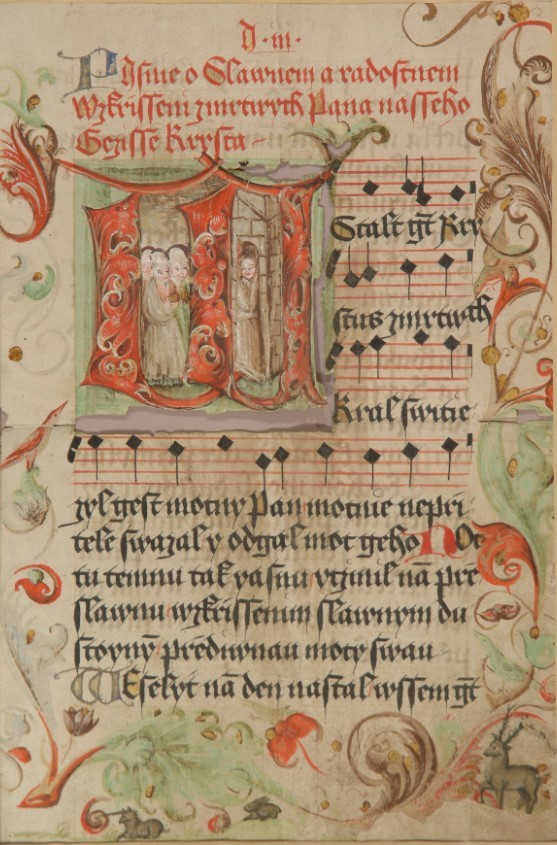 D · III ·
Pisnie o Slawnem a radostnem
Wzkrissenj zmrtwych Pana nasseho
Gezisse Krysta
WStalt gt Kry
stus zmrtwch
Kral switie
zyl gest mocny Pan mocnie nepri
tele swazal y odgal moc geho NOc
tu temnu tak yasnu vczinil nā pre
slawnu wzkrissenim slawnym du
stoyny predwnau mocy swau
WEselyt nā den nastal wssem gt